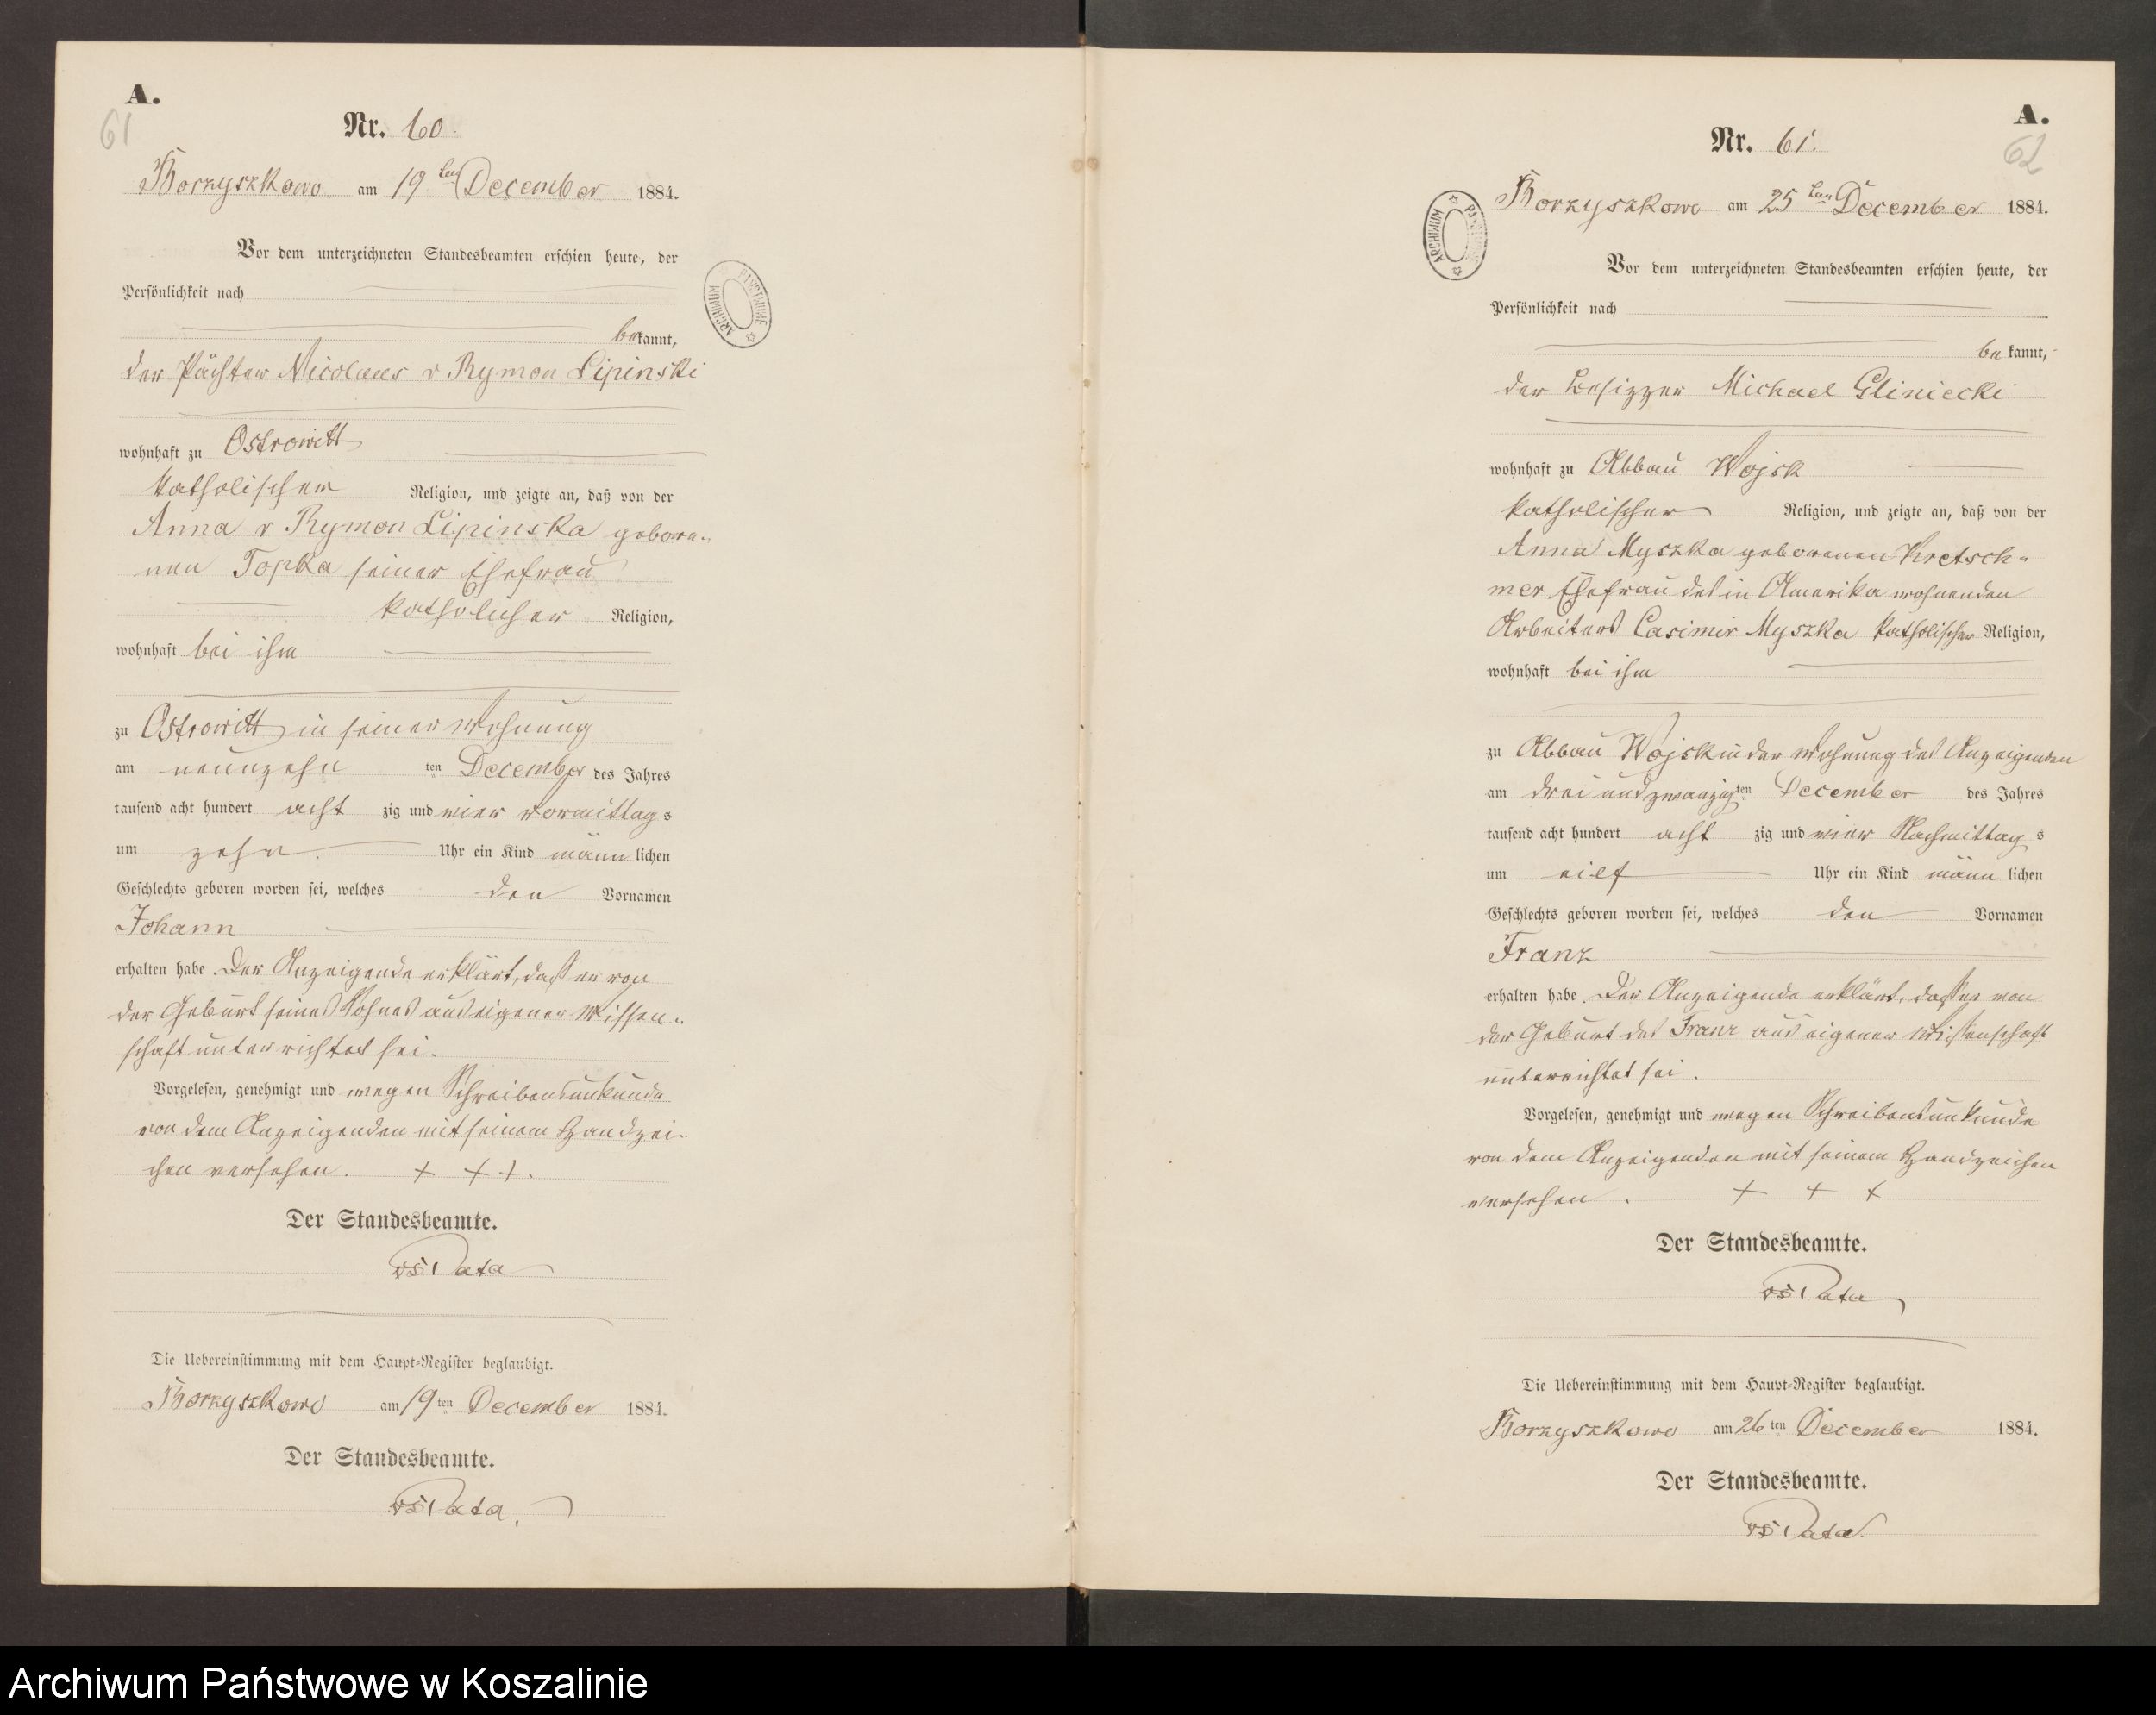 A.
61
Nr. 60.
Borzyszkowo am 19ten December 1884.
Vor dem unterzeichneten Standesbeamten erschien heute, der
Persönlichkeit nach
bekannt,
der Pächter Nicolaus v Rymon Lipinski
wohnhaft zu Ostrowitt
katholischer Religion, und zeigte an, daß von der
Anna v Rymon Lipinska gebore-
nen Topka seiner Ehefrau
katholischer Religion,
wohnhaft bei ihm
zu Ostrowitt in seiner Wohnung
am neunzehn ten December des Jahres
tausend acht hundert acht zig und vier vormittags
um zehn Uhr ein Kind männlichen
Geschlechts geboren worden sei, welches den Vornamen
Johann
erhalten habe. Der Anzeigende erklärt, daß er von
der Geburt seines Sohnes aus eigener Wissen-
schaft unterrichtet sei.
Vorgelesen, genehmigt und wegen Schreibensunkunde
von dem Anzeigenden mit seinem Handzei-
chen versehen. + + +.
Der Standesbeamte.
Pata
Die Uebereinstimmung mit dem Haupt-Register beglaubigt.
Borzyszkowo am 19ten December 1884.
Der Standesbeamte.
Pata.
A.
62
Nr. 61.
ARCHIWUM PAŃSTWOWE
Borzyszkowo am 25ten December 1884.
Vor dem unterzeichneten Standesbeamten erschien heute, der
Persönlichkeit nach
bekannt,
der Besizzer Michael Gliniecki
wohnhaft zu Abbau Wojsk
katholischer Religion, und zeigte an, daß von der
Anna Myszka geborenen Kretsch-
mer Ehefrau des in Amerika wohnenden
Arbeiters Casimir Myszka katholischer Religion,
wohnhaft bei ihm
zu Abbau Wojsk in der Wohnung des Anzeigenden
am drei und zwanzigten December des Jahres
tausend acht hundert acht zig und vier Nachmittags
um eilf Uhr ein Kind männlichen
Geschlechts geboren worden sei, welches den Vornamen
Franz
erhalten habe. Der Anzeigende erklärt, daß er von
der Geburt des Franz aus eigener Wissenschaft
unterrichtet sei.
Vorgelesen, genehmigt und wegen Schreibensunkunde
von dem Anzeigenden mit seinem Handzeichen
versehen. + + +
Der Standesbeamte.
Pata
Die Uebereinstimmung mit dem Haupt-Register beglaubigt.
Borzyszkowo am 26ten December 1884.
Der Standesbeamte.
Pata
Archiwum Państwowe w Koszalinie